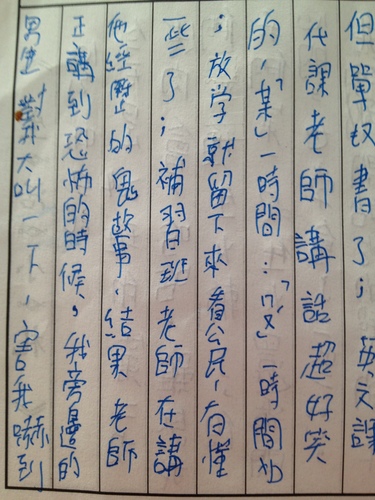 但單書了；英文課
代課老師講話超好笑
的，「某」一時間：「」一時間
；放学就留下來看公民，有懂
一些了；補習班老師在講
他經歷的鬼故事，結果老師
正講到恐怖的時候，我旁邊的
男生對我大叫一下，害我嚇到